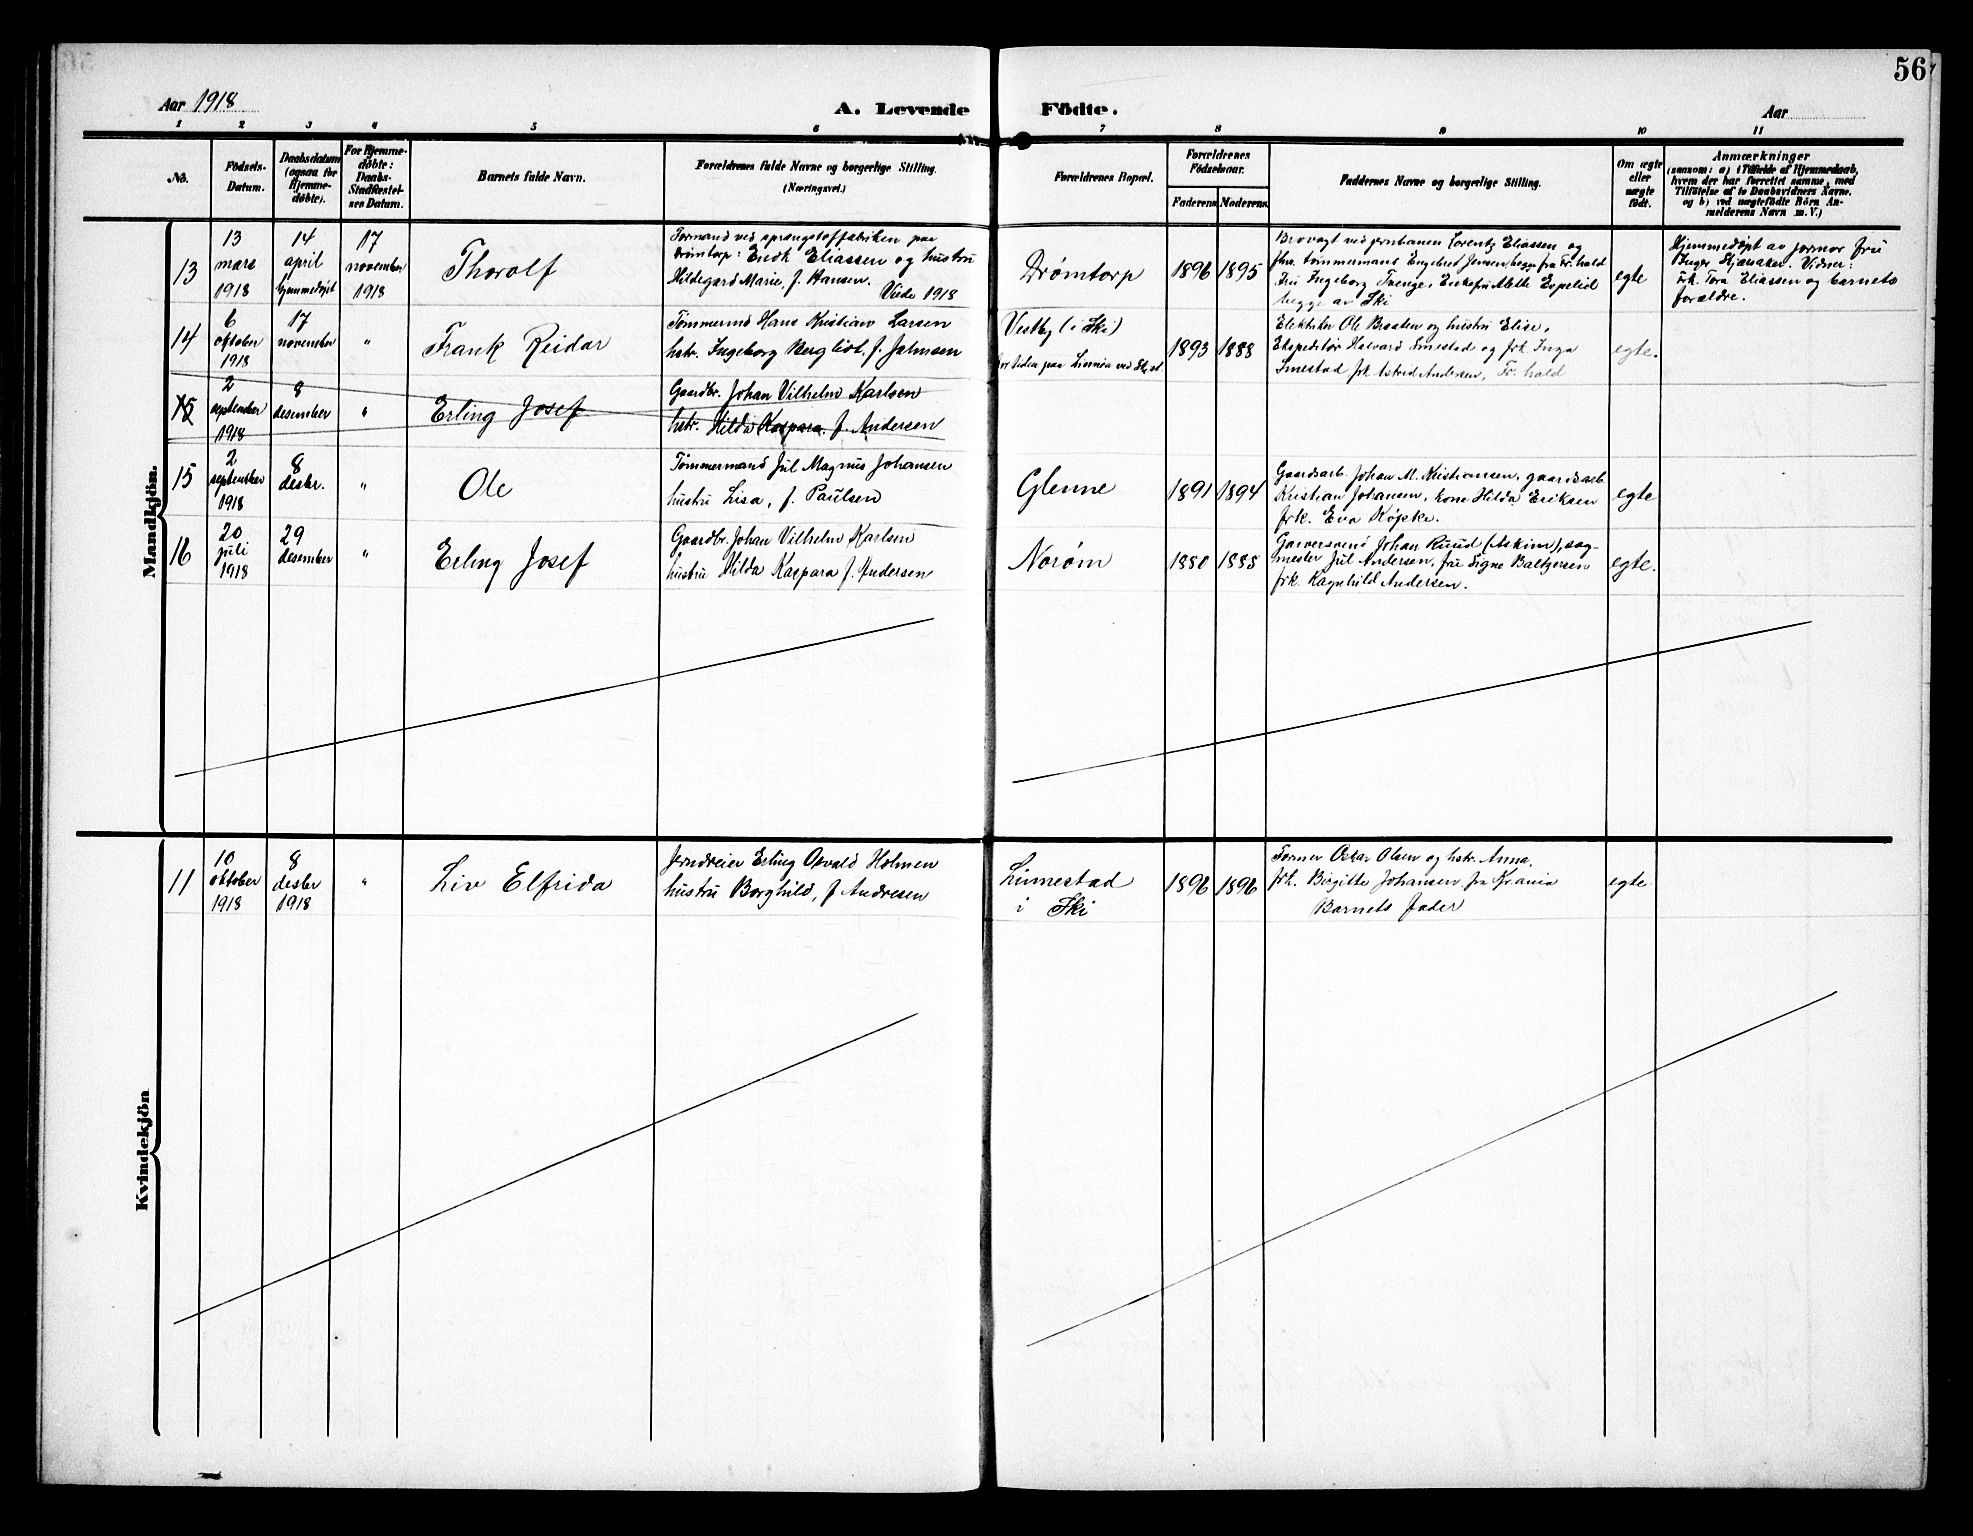 56
Aar 1918
A. Levende Födte.
Aar
1 2 3 4 5 6 7 8 9 10 11
No.
Födsels-
Datum.
Daabsdatum
(ogsaa for
Hjemme-
döbte).
For Hjemme-
döbte:
Daabs-
Stadfæstel-
ses Datum.
Barnets fulde Navn.
Forældrenes fulde Navne og borgerlige Stilling.
(Næringsvei.)
Forældrenes Bopæl.
Forældrenes
Födselsaar.
Faderens. Moderens.
Faddernes Navne og borgerlige Stilling.
Om ægte
eller
uægte
födt.
Anmærkninger
(saasom: a) i Tilfælde af Hjemmedaab,
hvem der har forrettet samme, med
Tilföielse af to Daabsvidners Navne,
og b) ved uægtefödte Börn An-
melderens Navn m. V.)
Mandkjön.
13
13
mars
1918
14
april
hjemmedøpt
17
november
1918
Thorolf
Formand ved sprængstoffabriken paa
Drømtorp: Eliassen og hustru
Hildegard Marie, f. Hansen.
Viede 1918
Drømtorp
1896
1895
Brovagt ved jernbanen Lorentz Eliassen og
tømmermand Engebret Jensen, begge fra Fr.hald
Fru Ingeborg Trenge, Enkefru Alette Espelid
begge av Ski
egte
Hjemmedøpt av jormor fru
Inger Vidner:
frk. Tora Eliassen og barnets
forældre.
14
6
oktober
1918
17
november
"
Frank Reidar
Tømmermd Hans Kristian Larsen
hstr. Ingeborg Bergliot, f. Jahnsen
Vestby (i Ski)
1893
1888
Elektriker Ole Braaten og hustru Elise,
Ekspeditør Halvard Smestad og frk. Inga
Smestad frk Astrid Andersen, Fr.hald
egte.
15
2
september
1918
8
desember
"
Erling Josef
Gaardbr. Johan Vilhelm Karlsen
hstr. Hilda Kaspara, f. Andersen
15
2
september
1918
8
desbr.
"
Ole
Tømmermand Jul Magnus Johansen
hustru Lisa, f. Paulsen
Glenne
1891
1894
Gaardsarb. Johan M. Kristiansen, gaardsarb.
Kristian Johansen, kone Hilda Eriksen
frk. Eva Köpke.
egte
16
20
juli
1918
29
desember
"
Erling Josef
Gaardbr. Johan Vilhelm Karlsen
hustru Hilda Kaspara f. Andersen
Norøm
1880
1885
Garversvend Johan Ruud (Askim), sag-
mester Jul Andersen, fru Signe Baltzersen
frk. Ragnhild Andersen.
egte.
Kvindekjön
11
10
oktober
1918
8
desbr
1918
"
Liv Elfrida
Jerndreier Erling Osvald Holmen
hustru Borghild, f Andresen
Linnestad
i Ski
1896
1896
Former Oskar Olsen og hstr. Anna,
frk. Birgitte Johansen fra Krania
Barnets fader
egte